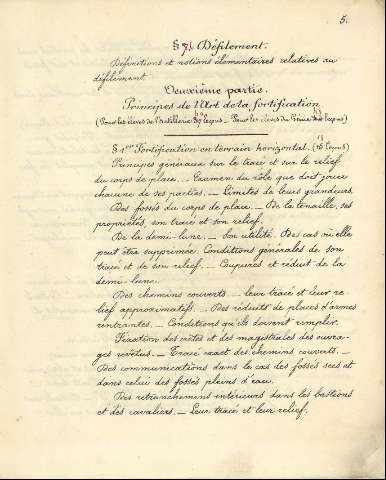 5.
§ 7. Défilement.
Définitions et notions élémentaires relatives au
défilement.
Deuxième partie.
Principes de l'Art de la fortification
(Pour les élèves de l'Artillerie leçons _ Pour les élèves du Génie leçons)
§ 1er Fortification en terrain horizontal. ( leçons)
Principes généraux sur le tracé et sur le relief
du corps de place. _ Examen du rôle que doit jouer
chacune de ses parties. _ Limites de leurs grandeurs.
Des fossés du corps de place. _ De la tenaille, ses
propriétés, son tracé et son relief.
De la demi-lune. _ Son utilité. Des cas où elle
peut être supprimée. Conditions générales de son
tracé et de son relief. _ Coupures et réduit de la
demi-lune.
Des chemins couverts _ leur tracé et leur re-
lief approximatifs. _ Des réduits de places d'armes
rentrantes. _ Conditions qu'ils doivent remplir.
Fixation des crêtes et des magistrales des ouvra-
ges revêtus. _ Tracé exact des chemins couverts. _
Des communications dans le cas des fossés secs et
dans celui des fossés pleins d'eau.
Des retranchements intérieurs dans les bastions
et des cavaliers. _ Leur tracé et leur relief.